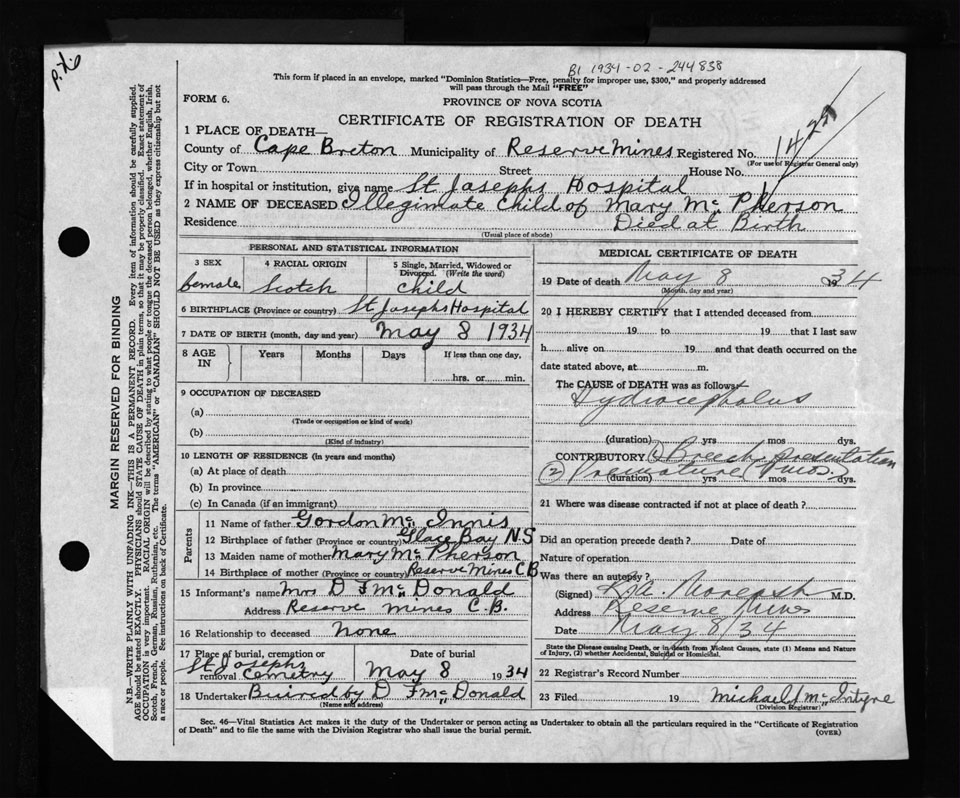 P. X. 6
B1 1934-02-244838
This form if placed in an envelope, marked "Dominion Statistics—Free, penalty for improper use, $300," and properly addressed
will pass through the Mail "FREE"
FORM 6.
PROVINCE OF NOVA SCOTIA
CERTIFICATE OF REGISTRATION OF DEATH
1 PLACE OF DEATH—
County of Cape Breton Municipality of Reserve Mines Registered No.
(For use of Registrar General only)
City or Town Street House No.
If in hospital or institution, give name St Josephs Hospital
2 NAME OF DECEASED Illegimate Child of Mary Mc Pherson
Residence Died at Birth
(Usual place of abode)
PERSONAL AND STATISTICAL INFORMATION
3 SEX 4 RACIAL ORIGIN 5 Single, Married, Widowed or Divorced. (Write the word)
female Scotch Child
6 BIRTHPLACE (Province or country) St Josephs Hospital
7 DATE OF BIRTH (month, day and year) May 8 1934
8 AGE IN Years Months Days If less than one day,
hrs. or min.
9 OCCUPATION OF DECEASED
(a)
(Trade or occupation or kind of work)
(b)
(Kind of industry)
10 LENGTH OF RESIDENCE (in years and months)
(a) At place of death
(b) In province
(c) In Canada (if an immigrant)
Parents
11 Name of father Gordon Mc Innis
12 Birthplace of father (Province or country) Glace Bay N S
13 Maiden name of mother Mary Mc Pherson
14 Birthplace of mother (Province or country) Reserve Mines C B
15 Informant's name Mrs D F Mc Donald
Address Reserve Mines C. B.
16 Relationship to deceased None
17 Place of burial, cremation or removal Date of burial
St Josephs Cemetry May 8 1934
18 Undertaker Buired by D F Mc Donald
(Name and address)
MEDICAL CERTIFICATE OF DEATH
19 Date of death May 8 1934
(Month, day and year)
20 I HEREBY CERTIFY that I attended deceased from
19 to 19 that I last saw
h alive on 19 and that death occurred on the
date stated above, at m.
The CAUSE of DEATH was as follows:
Hydrocephalus
(duration) yrs mos dys.
CONTRIBUTORY (1) Breech presentation
(2) Premature mos.
(duration) yrs mos dys.
21 Where was disease contracted if not at place of death?
Did an operation precede death? Date of
Nature of operation
Was there an autopsy?
(Signed) M.D.
Address Reserve Mines
Date May 8/34
State the Disease causing Death, or in death from Violent Causes, state (1) Means and Nature
of Injury, (2) whether Accidental, Suicidal or Homicidal.
22 Registrar's Record Number
23 Filed 19 Michael J Mc Intyre
(Division Registrar)
Sec. 46—Vital Statistics Act makes it the duty of the Undertaker or person acting as Undertaker to obtain all the particulars required in the "Certificate of Registration
of Death" and to file the same with the Division Registrar who shall issue the burial permit.
(OVER)
MARGIN RESERVED FOR BINDING
N.B.—WRITE PLAINLY WITH UNFADING INK—THIS IS A PERMANENT RECORD. Every item of information should be carefully supplied.
AGE should be stated EXACTLY. PHYSICIANS should STATE CAUSE OF DEATH in plain terms, so that it may be properly classified. Exact statement of
OCCUPATION is very important. RACIAL ORIGIN will be described by stating to what people or tongue the deceased person belonged, whether English, Irish,
Scotch, French, German, Russian, Ruthenian, etc. The terms "AMERICAN" or "CANADIAN" SHOULD NOT BE USED as they express citizenship but not
a race or people. See instructions on back of Certificate.